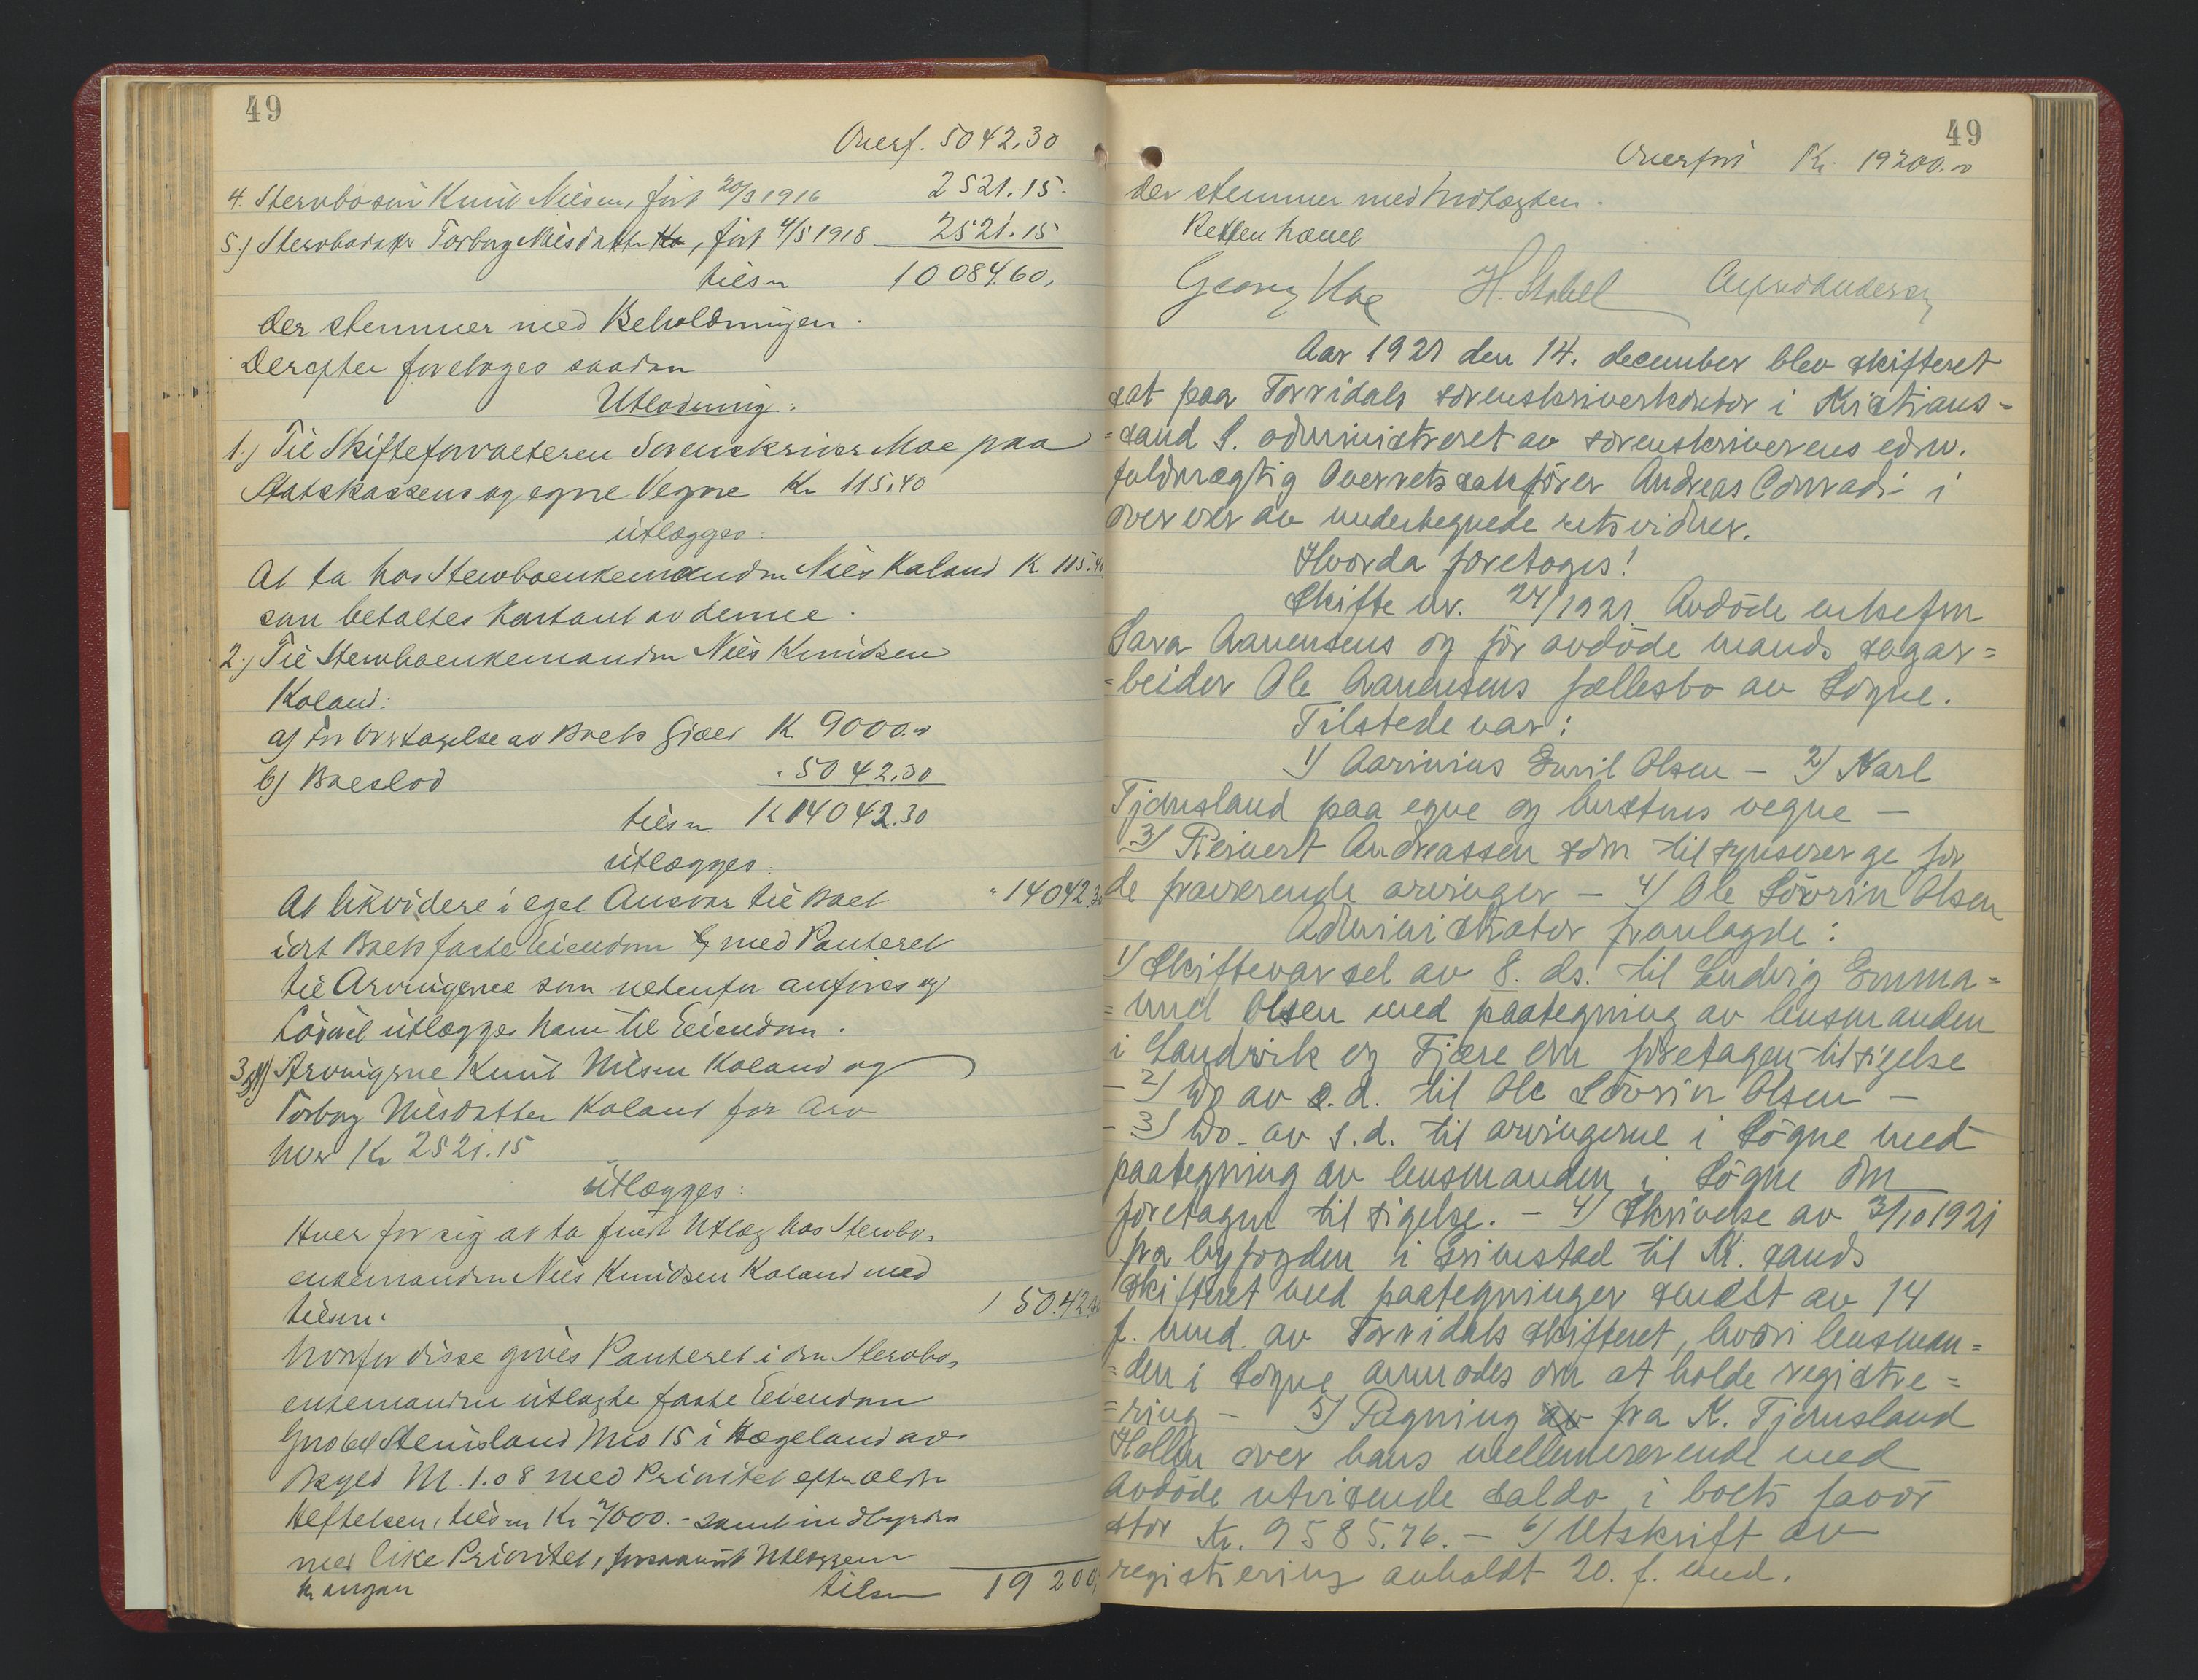 49
Overf. 5042.30
4. Stervbosön Knut Nilsen, föt 20/3 1916 2521.15.
5.) Stervbodatter Torborg Nilsdatter, föt 4/5 1918 2521.15
tilsm 10084.60.
der stemmer med Beholdningen.
Derefter foretoges saadan
Utlodning.
1.) Til Skifteforvalteren Sorenskriver Moe paa
Statskassens og egne Vegne Kr 115.40
utlægges:
At ta hos Stervboenkemanden Nils Kaland K 115.40
som betaltes kontant av denne.
2.) Til Stervboenkemanden Nils Knudsen
Kaland:
a) For Overtagelse av Boets Gjæld K 9000.00
b) Boeslod " 5042.30
tilsm K 14042.30
utlægges.
At likvidere i eget Ansvar til Boet " 14042.30
idet Boets faste Eiendom med Panteret
til Arvingerne som nedenfor anföres og
Lösöre utlægges ham til Eiendom.
3 og 4) Arvingerne Knut Nilsen Kaland og
Torborg Nilsdatter Kaland for Arv
hver Kr 2521.15
utlægges:
Hver for sig at ta fuldt Utlæg hos Stervbo-
enkemanden Nils Knudsen Kaland med
tilsm. 5042.30
hvorfor disse gives Panteret i den Stervbo-
enkemanden utlagte faste Eiendom
Gno 6 Stenisland Bno 15 i Hægeland av
Skyld M. 1.08 med Prioritet efter ældre
Heftelser, tilsm Kr 7000.- samt indbyrdes
med like Prioritet, forsaavidt Utlæggene
angaar tilsm 19 200
49
Overfört Kr. 19200.00
der stemmer med Indtægten.
Retten hævet
Georg Moe H. Stabel Alfred Andersen
Aar 1921 den 14. december blev skifteret
sat paa Torridals sorenskriverkontor i Kristians-
=sand S. administreret av sorenskriverens edsv.
fuldmægtig Overretssakförer Andreas Conradi i
overvær av undertegnede retsvidner.
Hvorda foretoges!
Skifte nr. 24/1921. Avdöde enkefru
Sara Aanensens og för avdöde mands sagar=
=beider Ole Aanensens fællesbo av Sögne.
Tilstede var:
1) Aarinius Emil Olsen - 2) Karl
Tjomsland paa egne og hustrus vegne -
3) Reinert Andreassen som tilsynsverge for
de fraværende arvinger - 4) Ole Sövrin Olsen
Administrator fremlagde:
1) Skiftevarsel av 8. ds. til Ludvig Emma=
=nuel Olsen med paategning av lensmanden
i Landvik og Fjære om foretagen tilsigelse
- 2) Do av s.d. til Ole Sövrin Olsen -
- 3) Do. av s.d. til arvingerne i Sögne med
paategning av lensmanden i Sögne om
foretagen tilsigelse. - 4) Skrivelse av 3/10 1921
fra byfogden i Grimstad til Kr. sands
skifteret med paategninger senest av 14
f. mnd. av Torridals skifteret, hvori lensman=
=den i Sögne anmodes om at holde registre=
=ring - 5) Regning fra K. Tjomsland
Hollen over hans mellemværende med
Avdöde utvisende saldo i boets favör
stor Kr. 9585.76. - 6) Utskrift av
registrering avholdt 20. f. mnd.